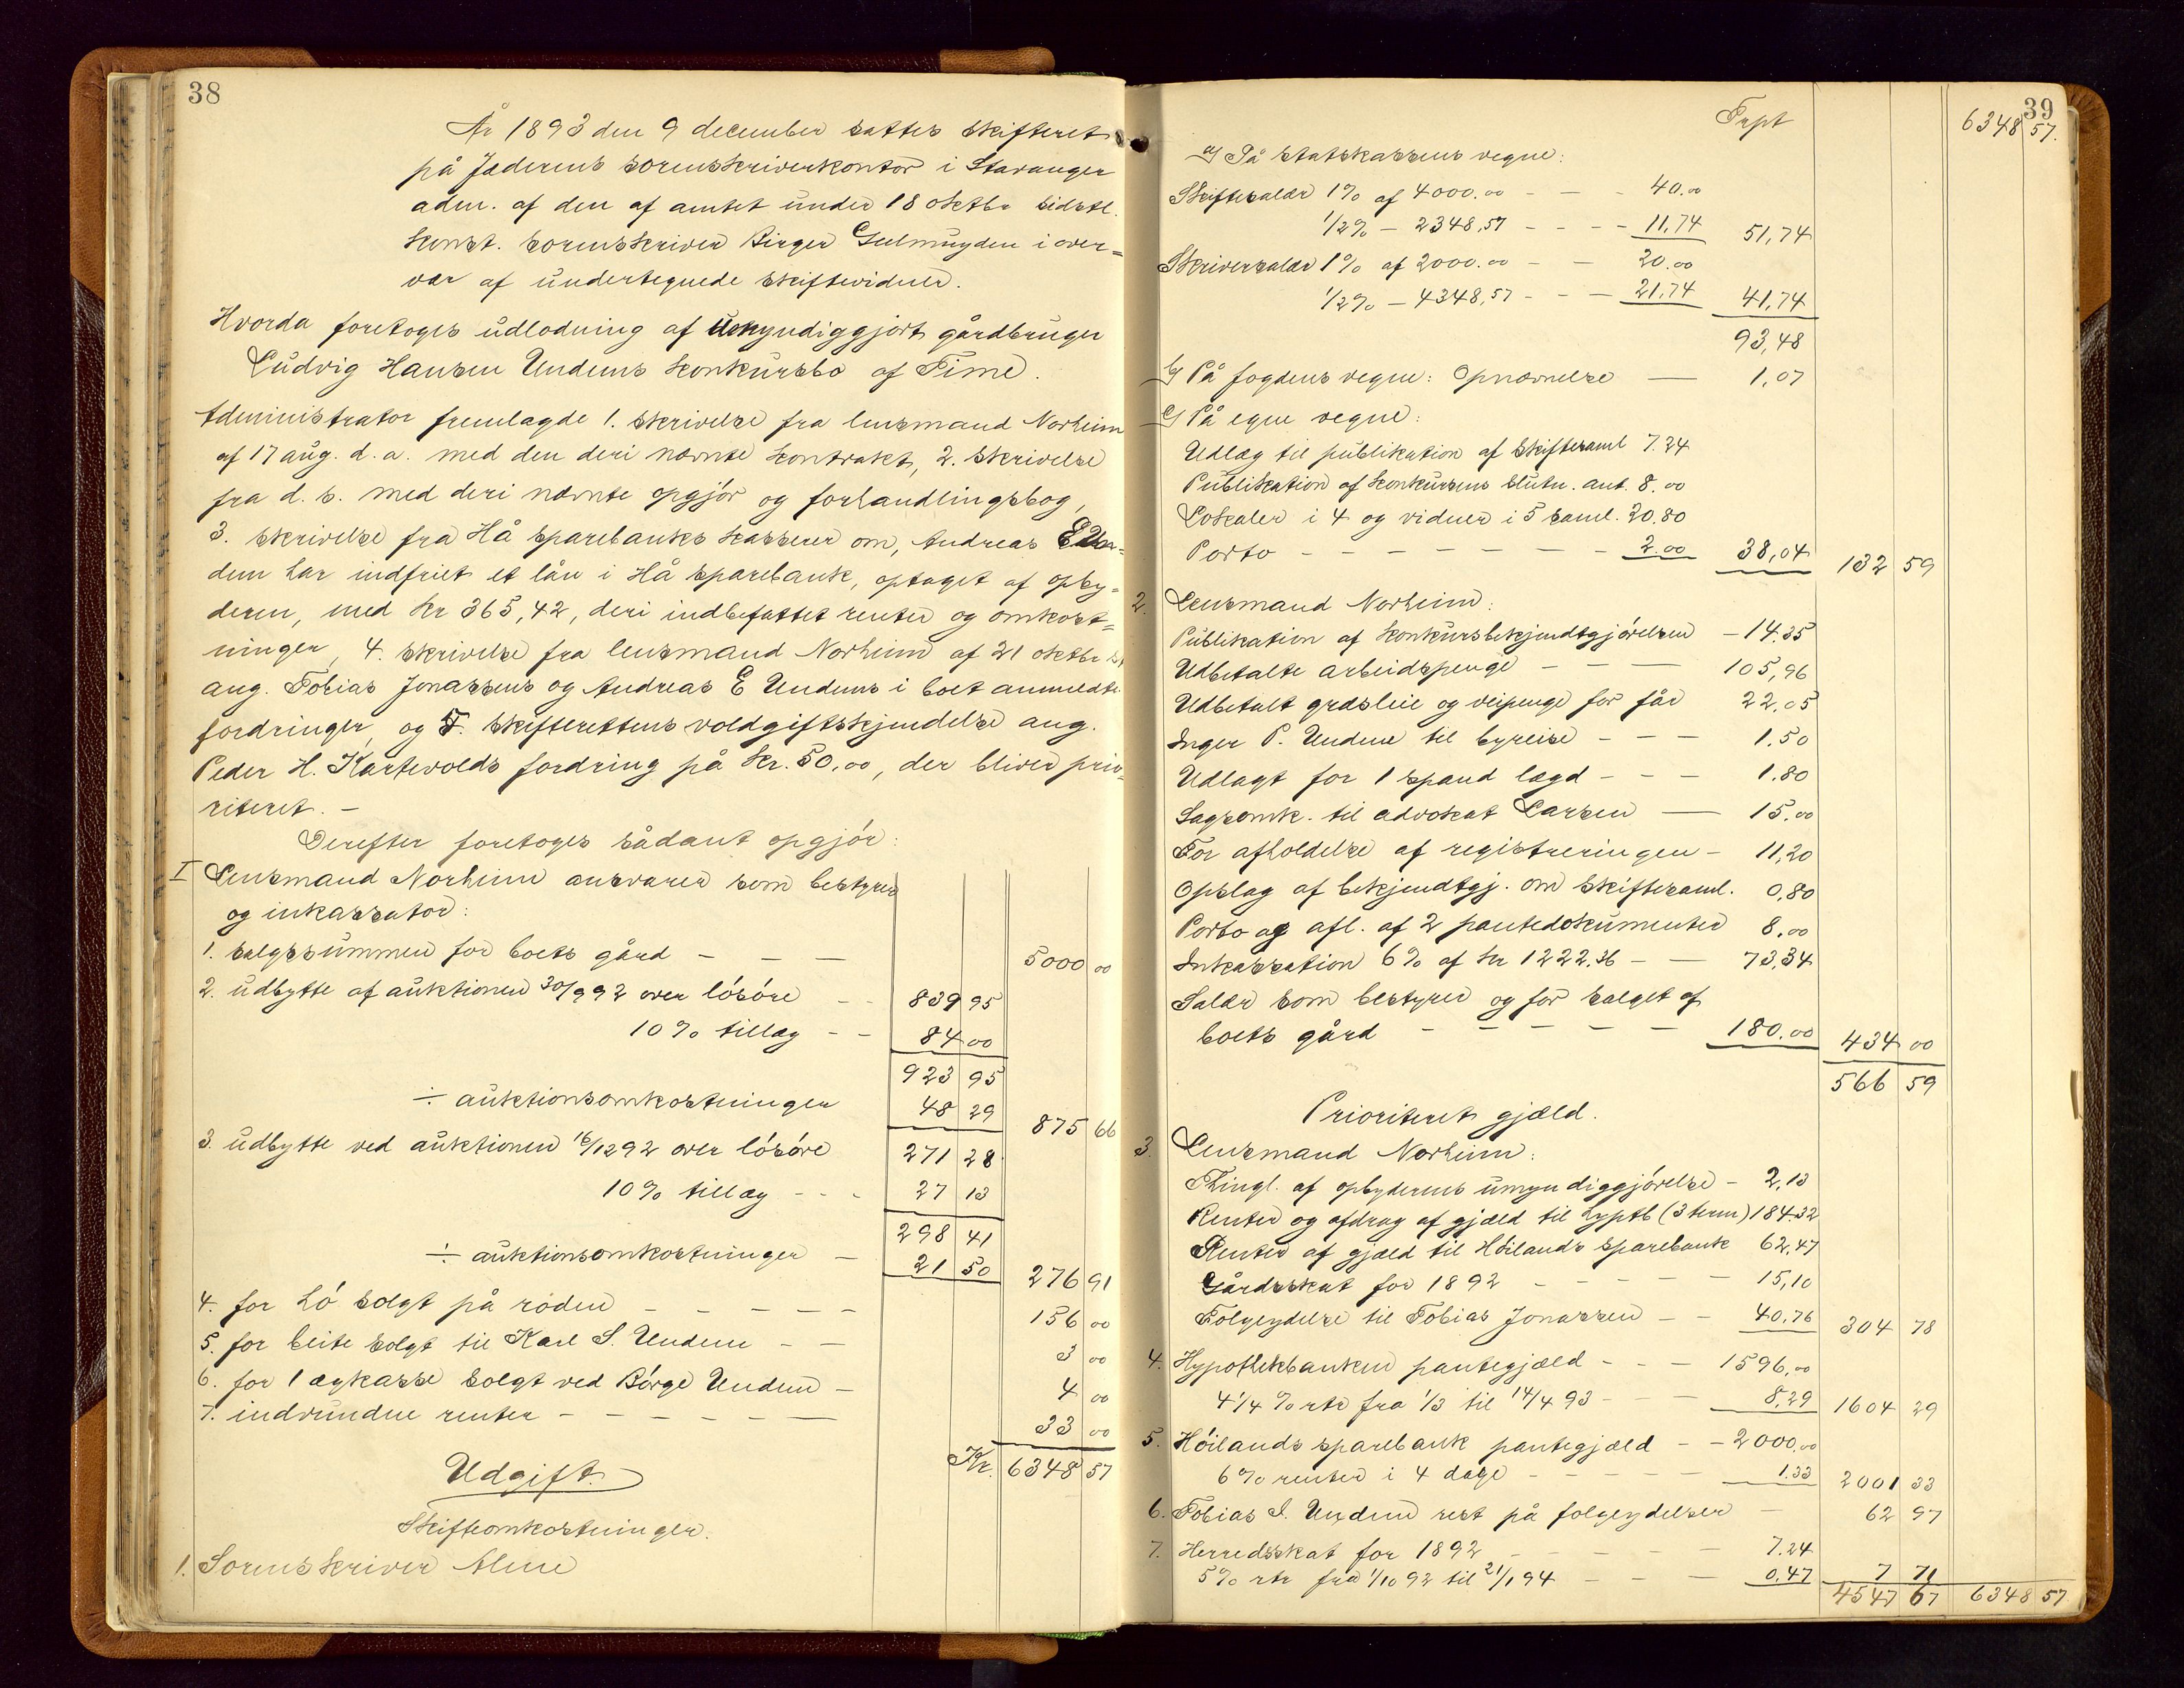 38
År 1893 den 9 december sattes skifteret
på Jæderens sorenskriverkontor i Stavanger
adm. af den af amtet under 18 oktbr sidstl.
konst. sorenskriver Birger Gulmuyden i over=
vær af undertegnede skiftevidner.
Hvorda foretoges udlodning af umyndiggjort gårdbruger
Ludvig Hansen Undems konkursbo af Time.
Administrator fremlagde 1. skrivelse fra lensmand Norheim
af 17 aug. d. a. med den deri nævnte kontrakt, 2. skrivelse
fra d. s. med deri nævnte opgjör og forhandlingsbog,
3. skrivelse fra Hå sparebanks kasserer om, Andreas E Un-
dem har indfriet et lån i Hå sparebank, optaget af opby=
deren, med kr 365,42, deri indbefattet renter og omkost=
ninger, 4. skrivelse fra lensmand Norheim af 21 oktbr
ang. Tobias Jonassens og Andreas E Undems i boet anmeldte
fordringer, og 5. skifterettens voldgiftskjendelse ang.
Peder H. Kartevolds fordring på kr. 50,00, der bliver prio-
riteret. -
Derefter foretoges sådant opgjör:
I Lensmand Norheim ansvarer som bestyrer
og inkassator:
1. salgssummen for boets gård - - - 5000 00
2. udbytte af auktionen 30/9 92 over lösöre - - 839 95
10 % tillæg - - 84 00
923 95
÷ auktionsomkostninger 48 29 875 66
3. udbytte ved auktionen 16/12 92 over lösöre 271 28
10 % tillæg - - - 27 13
298 41
÷ auktionsomkostninger - 21 50 276 91
4. for hö solgt på roden - - - - - 156 00
5. for beite solgt til Karl S. Undem - - 3 00
6. for 1 ægkasse solgt ved Börge Undem - 4 00
7. indvundne renter - - - - - - 33 00
Kr. 6348 57
Udgift.
Skifteomkostninger.
1. Sorenskriver Alme
39
Trpt 6348 57.
a) På statskassens vegne:
Skiftesalær 1 % af 4000.00 - - - 40.00
1/2 % - 2348,57 - - - - 11,74 51,74
Skriversalær 1 % af 2000.00 - - 20.00
1/2 % - 4348,57 - - - 21,74 41,74
93,48
b) På fogdens vegne: Opnævnelse - 1,07
c) På egne vegne:
Udlæg til publikation af skiftesaml 7.24
Publikation af konkursens slutn. ant. 8.00
Lokaler i 4 og vidner i 5 saml. 20.80
Porto - - - - - - - - 2.00 38,04 132 59
2. Lensmand Norheim:
Publikation af konkursbekjendtgjörelsen - 14.35
Udbetalte arbeidspenge - - - 105,96
Udbetalt græsleie og veipenge for får 22,05
Inger P. Undem til byreise - - - 1.50
Udlagt for 1 spand lægd - - - 1.80
Sagsomk. til advokat Larsen - 15.00
For afholdelse af registreringen - 11,20
Opslag af bekjendtgj. om skiftesaml. 0,80
Porto og afl. af 2 pantedokumenter 8.00
Inkassation 6 % af kr 1222.36 - - 73,34
Salær som bestyrer og for salget af
boets gård - - - - - 180.00 434 00
566 59
Prioriteret gjæld.
3. Lensmand Norheim:
Thingl. af opbyderens umyndiggjörelse - 2,13
Renter og afdrag af gjæld til hyptb (3 term) 184.32
Renter af gjæld til Höilands sparebank 62,47
Gårdsskat for 1892 - - - - - 15,10
Folgeydelse til Tobias Jonassen - - 40,76 304 78
4. Hypothekbanken pantegjæld - - - 1596,00
4 1/4 % rtr fra 1/3 til 14/4 93 - - - 8,29 1604 29
5. Höilands sparebank pantegjæld - - 2000,00
6 % renter i 4 dage - - - - - 1.33 2001 33
6. Tobias J. Undem rest på folgeydelser - 62 97
7. Herredsskat for 1892 - - - - - 7.24
5 % rtr fra 1/10 92 til 21/1 94 - - - 0,47 7 71
4547 67 6348 57